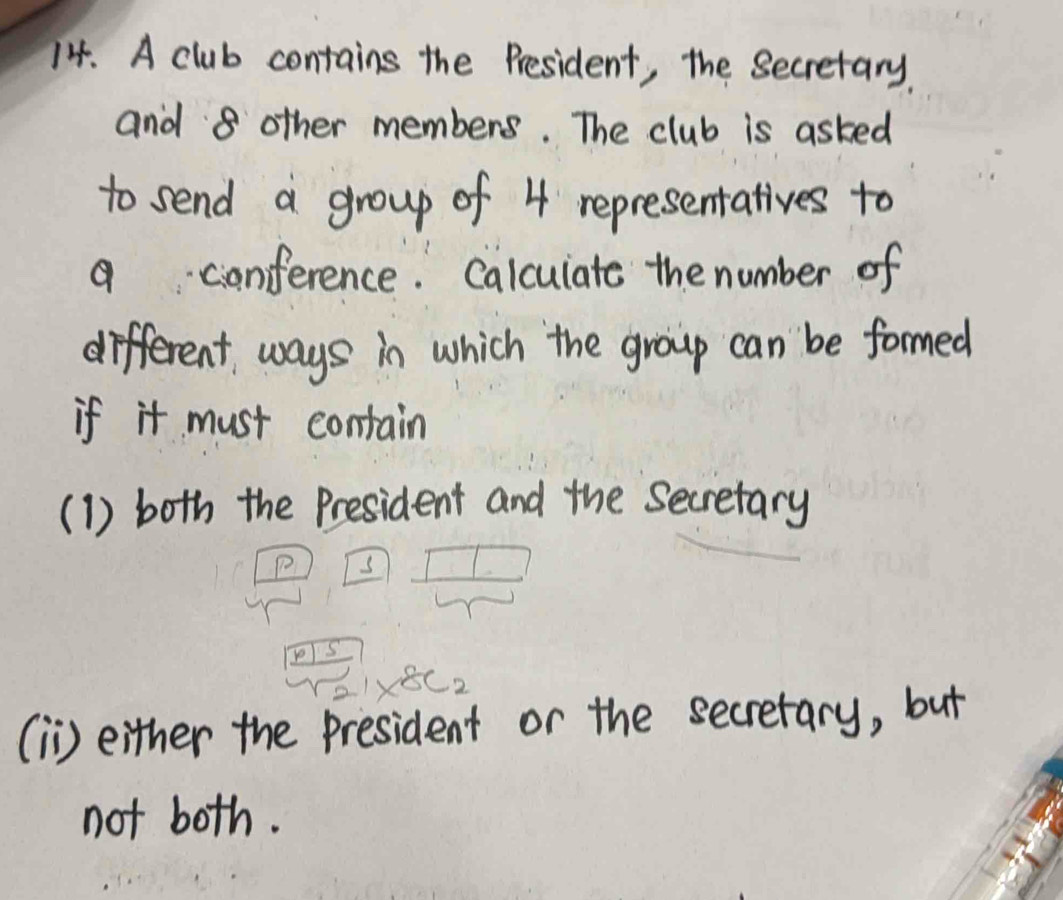 14. A club contains the President, the Secretary
and 8 other members. The club is asked
to send a group of 4 representatives to
a conference. Calculate the number of
different ways in which the group can be formed
if it must contain
(1) both the President and the Secretary
P S
P S
2! × 8C2
(ii) either the President or the secretary, but
not both.